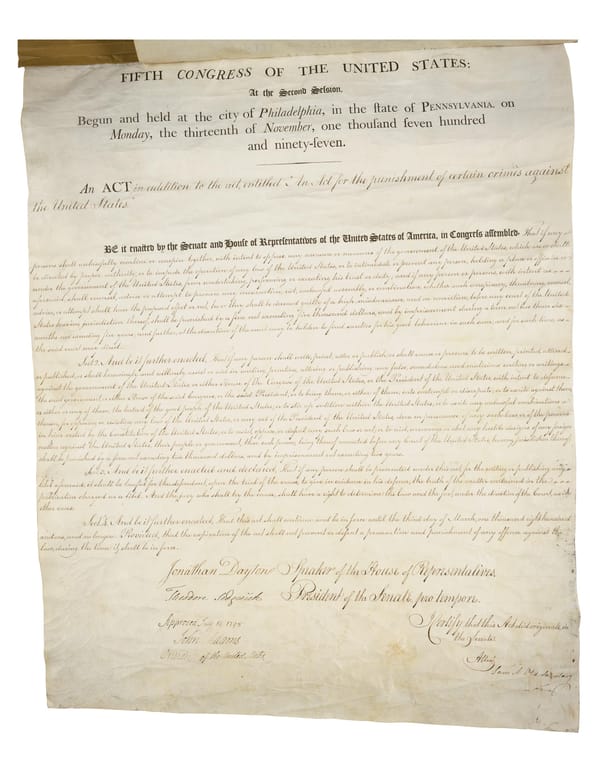 FIFTH CONGRESS OF THE UNITED STATES:
At the Second Session,
Begun and held at the city of Philadelphia, in the ſtate of PENNSYLVANIA, on
Monday, the thirteenth of November, one thouſand ſeven hundred
and ninety-ſeven.
An ACT in addition to the act, entitled "An Act for the punishment of certain crimes against
the United States."
BE it enacted by the Senate and House of Representatives of the United States of America, in Congress assembled, That if any
persons shall unlawfully combine or conspire together, with intent to oppose any measure or measures of the government of the United States, which are or shall
be directed by proper authority, or to impede the operation of any law of the United States, or to intimidate or prevent any person, holding a place or office in or
under the government of the United States, from undertaking, performing or executing his trust or duty; and if any person or persons, with intent as
aforesaid, shall counsel, advise or attempt to procure any insurrection, riot, unlawful assembly, or combination, whether such conspiracy, threatening, counsel,
advice, or attempt shall have the proposed effect or not, he or they shall be deemed guilty of a high misdemeanor, and on conviction, before any court of the United
States having jurisdiction thereof, shall be punished by a fine not exceeding five thousand dollars, and by imprisonment during a term not less than six
months nor exceeding five years; and further, at the discretion of the court may be holden to find sureties for his good behaviour in such sum, and for such time, as
the said court may direct.
Sec. 2. And be it further enacted, That if any person shall write, print, utter or publish, or shall cause or procure to be written, printed, uttered
or published, or shall knowingly and willingly assist or aid in writing, printing, uttering or publishing any false, scandalous and malicious writing or writings
against the government of the United States, or either House of the Congress of the United States, or the President of the United States, with intent to defame
the said government, or either House of the said Congress, or the said President, or to bring them, or either of them, into contempt or disrepute; or to excite against them,
or either or any of them, the hatred of the good people of the United States, or to stir up sedition within the United States, or to excite any unlawful combinations
therein, for opposing or resisting any law of the United States, or any act of the President of the United States, done in pursuance of any such law, or of the powers
in him vested by the constitution of the United States, or to resist, oppose, or defeat any such law or act, or to aid, encourage or abet any hostile designs of any foreign
nation against the United States, their people or government, then such person, being thereof convicted before any Court of the United States having jurisdiction thereof,
shall be punished by a fine not exceeding two thousand dollars, and by imprisonment not exceeding two years.
Sec. 3. And be it further enacted and declared, That if any person shall be prosecuted under this act, for the writing or publishing any
libel aforesaid, it shall be lawful for the defendant, upon the trial of the cause, to give in evidence in his defence, the truth of the matter contained in the
publication charged as a libel. And the jury who shall try the cause, shall have a right to determine the law and the fact, under the direction of the Court, as in
other cases.
Sec. 4. And be it further enacted, That this act shall continue and be in force until the third day of March, one thousand eight hundred
and one, and no longer: Provided, that the expiration of the act shall not prevent or defeat a prosecution and punishment of any offence against the
law, during the time it shall be in force.
Jonathan Dayton Speaker of the House of Representatives.
Theodore Sedgwick President of the Senate pro tempore.
Approved July 14 1798
John Adams
President of the United States
I Certify that this Act did originate in
the Senate.
Attest,
Sam. A. Otis Secretary